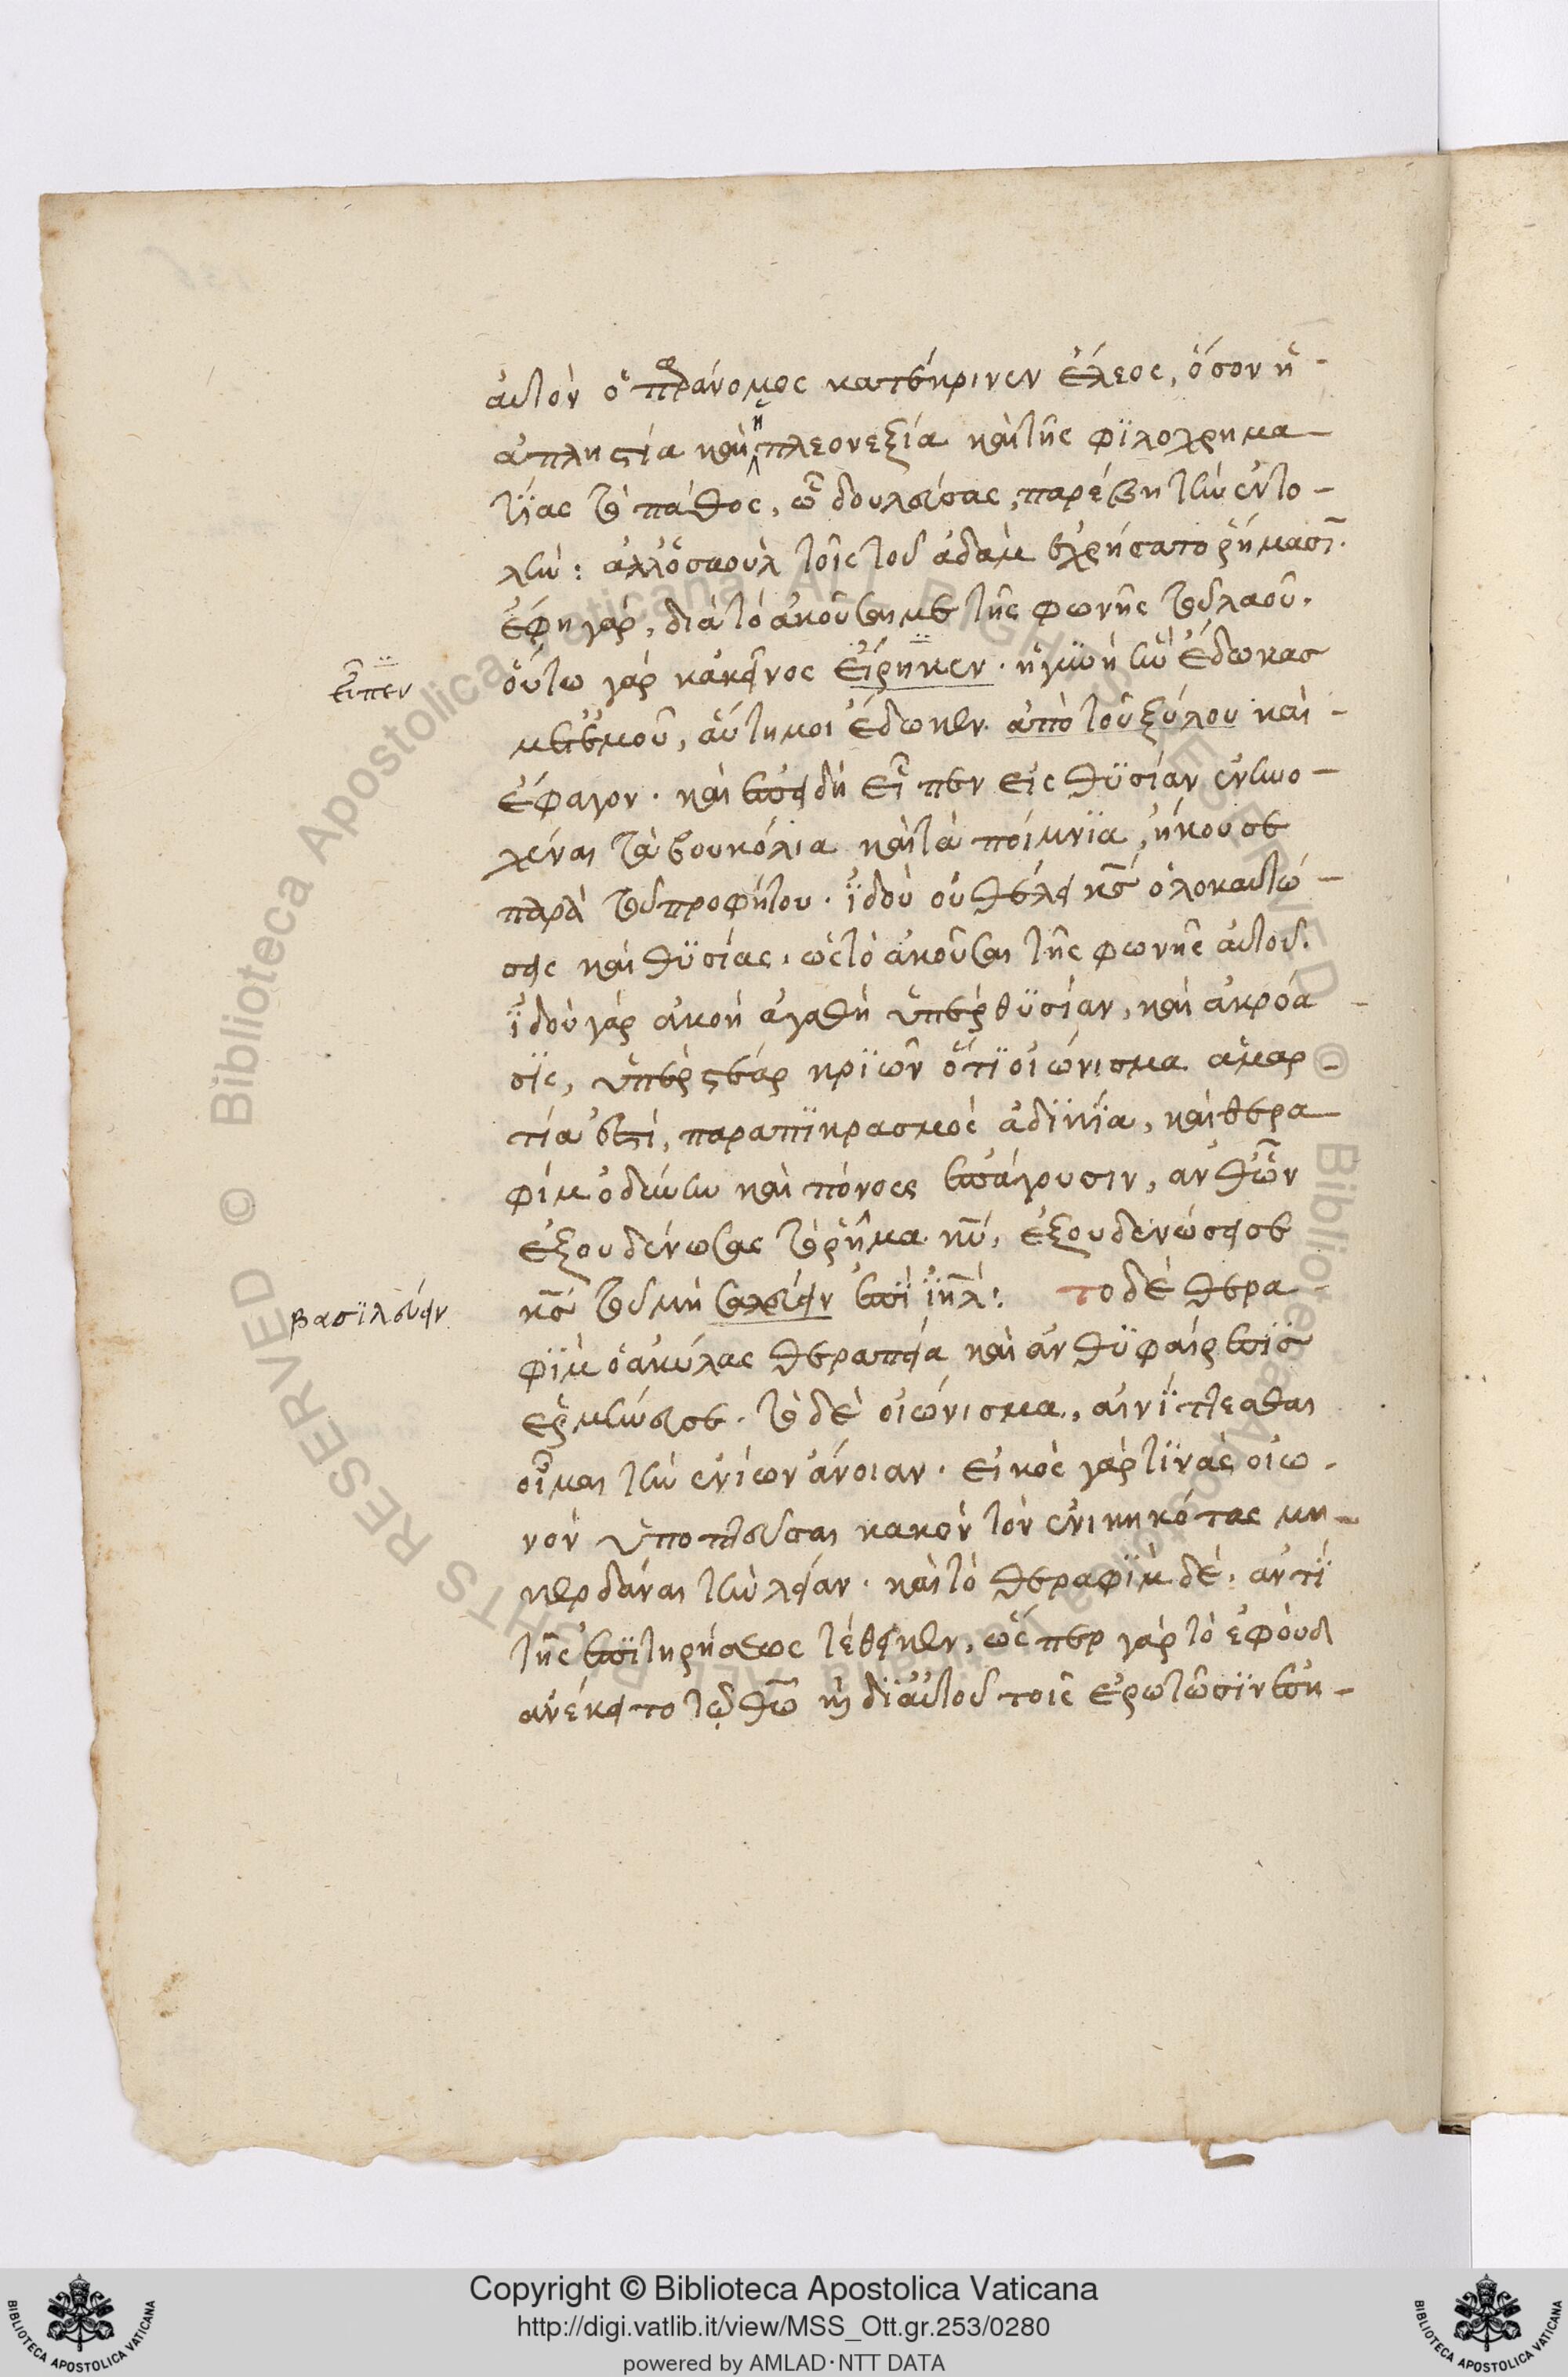 αὐτὸν ὁ παράνομος κατέκρινεν ἔλεος, ὅσον ἡ -
ἀπληστία καὶ ἡ πλεονεξία καὶ τῆς φϊλοχρημα -
τίας τὸ πάθος, ᾧ δουλεύσας, παρέβη τὴν ἐντο -
λήν: ἀλλ' ὁ σαοὺλ τοῖς τοῦ ἀδὰμ ἐχρήσατο ῥήμασϊ.
ἔφη γάρ, διὰ τὸ ἀκοῦσαί με τῆς φωνῆς τοῦ λαοῦ.
οὕτω γὰρ κἀκεῖνος εἴρηκεν. ἡ γυνὴ ἣν ἔδωκας
εἶπεν
μετ' ἐμοῦ, αὕτη μοι ἔδωκεν ἀπὸ τοῦ ξύλου καὶ -
ἔφαγον. καὶ ἐπειδὴ εἶπεν εἰς θϋσίαν ἐνηνο -
χέναι τὰ βουκόλια καὶ τὰ ποίμνϊα, ἤκουσε
παρὰ τοῦ προφήτου. ἰδοὺ οὐ θέλει κς ὁλοκαυτώ -
σεις καὶ θϋσίας, ὡς τὸ ἀκοῦσαι τῆς φωνῆς αὐτοῦ.
ἰδοὺ γὰρ ἀκοὴ ἀγαθὴ ὑπὲρ θϋσίαν, καὶ ἀκρόα -
σϊς, ὑπὲρ στέαρ κρϊῶν ὅτϊ οἰώνισμα ἁμαρ -
τία ἐστί, παραπϊκρασμὸς ἀδϊκία, καὶ θερα -
φὶμ ὀδύνην καὶ πόνους ἐπάγουσιν, ἀνθ' ὧν
ἐξουδένωσας τὸ ῥῆμα κυ, ἐξουδενώσει σε
κς τοῦ μὴ βασϊλεύειν ἐπὶ ιηλ: το δὲ θερα -
βασϊλεύειν
φϊμ ὁ ἀκύλας θεραπεία καὶ ἀνθϋφαίρεσϊς
ἑρμήνευσε. τὸ δὲ οἰώνισμα, αἰνίττεσθαι
οἶμαι τὴν ἐνίων ἄνοιαν. εἰκὸς γὰρ τϊνὰς οἰω -
νὸν ὑποπτεῦσαι κακὸν τὸν ἐνικηκότας μη -
κερδάναι τὴν λείαν. καὶ τὸ θεραφϊμ δὲ, ἀντϊ
τῆς ἐπϊτηρήσεως τέθεικεν, ὥσπερ γὰρ τὸ ἐφοὺδ
ἀνέκειτο τῷ θῶ κ δϊ' αὐτοῦ τοῖς ἐρωτῶσϊν